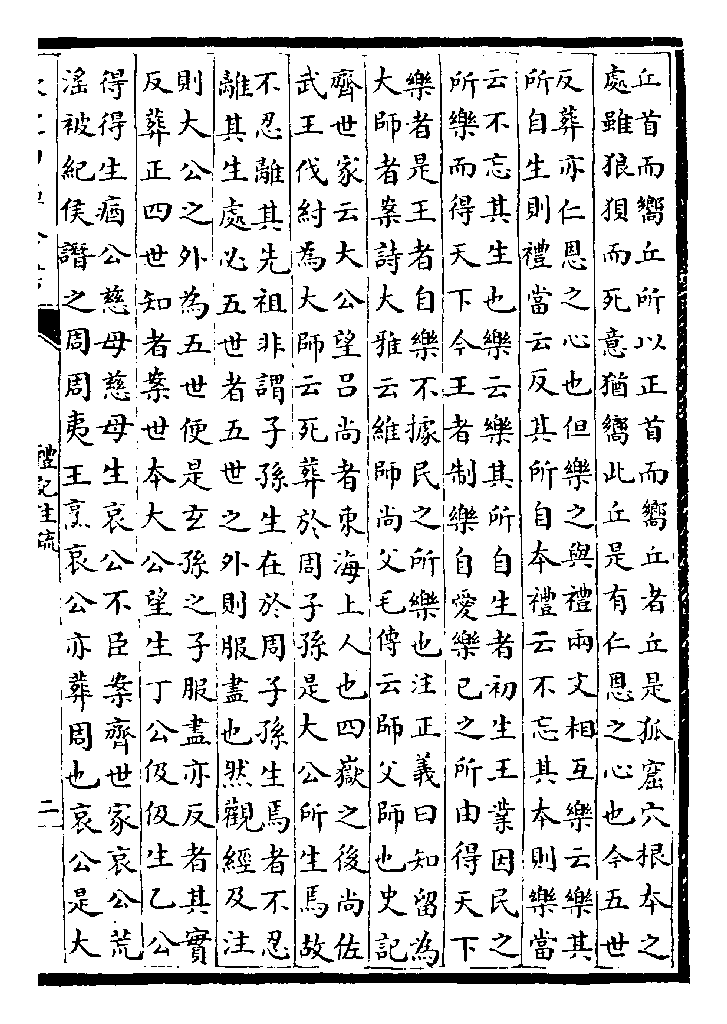 丘首而嚮丘所以正首而嚮丘者丘是狐窟穴根本之
處雖狼狽而死意猶嚮此丘是有仁恩之心也今五世
反葬亦仁恩之心也但樂之與禮兩文相互樂云樂其
所自生則禮當云反其所自本禮云不忘其本則樂當
云不忘其生也樂云樂其所自生者初生王業因民之
所樂而得天下今王者制樂自愛樂已之所由得天下
樂者是王者自樂不據民之所樂也注正義曰知留為
大師者案詩大雅云維師尚父毛傳云師父師也史記
齊世家云大公望吕尚者東海上人也四嶽之後尚佐
武王伐紂為大師云死葬於周子孫是大公所生焉故
不忍離其先祖非謂子孫生在於周子孫生焉者不忍
離其生處必五世者五世之外則服盡也然觀經及注
則大公之外為五世便是玄孫之子服盡亦反者其實
反葬正四世知者案世本大公望生丁公伋伋生乙公
得得生㾄公慈母慈母生哀公不臣案齊世家哀公荒
淫被紀侯譖之周周夷王烹哀公亦葬周也哀公是大
禮記注疏
二